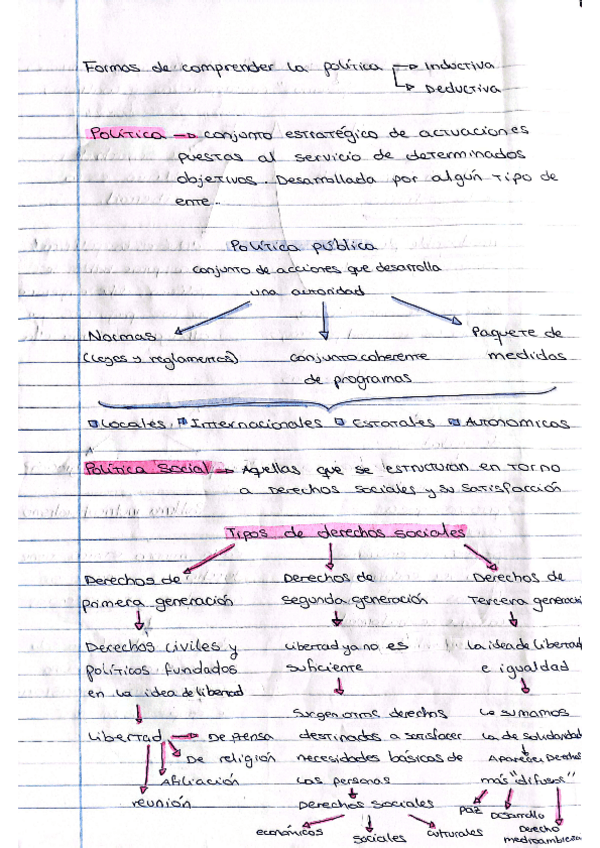 Formas de comprender la política → Inductiva
→ Deductiva
Política → conjunto estratégico de actuaciones
puestas al servicio de determinados
objetivos. Desarrollada por algún tipo de
ente.
Política pública
conjunto de acciones que desarrolla
una autoridad
Normas
(Leyes y reglamentos)
conjunto coherente
de programas
Paquete de
medidas
Locales, Internacionales Estatales Autonómicas
Política Social → Aquellas que se estructuran en torno
a Derechos sociales y su satisfacción
Tipos de derechos sociales
Derechos de
primera generación
Derechos civiles y
políticos fundados
en la idea de libertad
Libertad → De prensa
De religión
Afiliación
reunión
Derechos de
segunda generación
Libertad ya no es
suficiente
Surgen otros derechos
destinados a satisfacer
necesidades básicas de
las personas
Derechos sociales
económicos
sociales
culturales
Derechos de
Tercera generaci
La idea de libertad
e igualdad
Le sumamos
la de solidaridad
Aparecen Derechos
más "difusos"
paz
Desarrollo
Derecho
medioambiesa